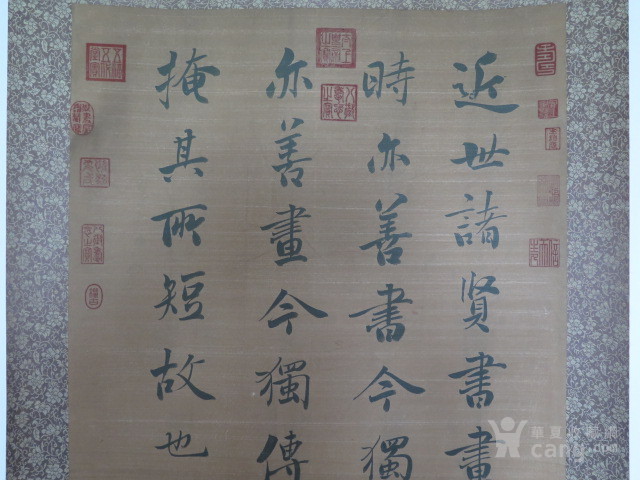 近世諸賢書畫
時亦善書今獨
亦善畫今獨傳
掩其所短故也
華夏收藏網
cang.com